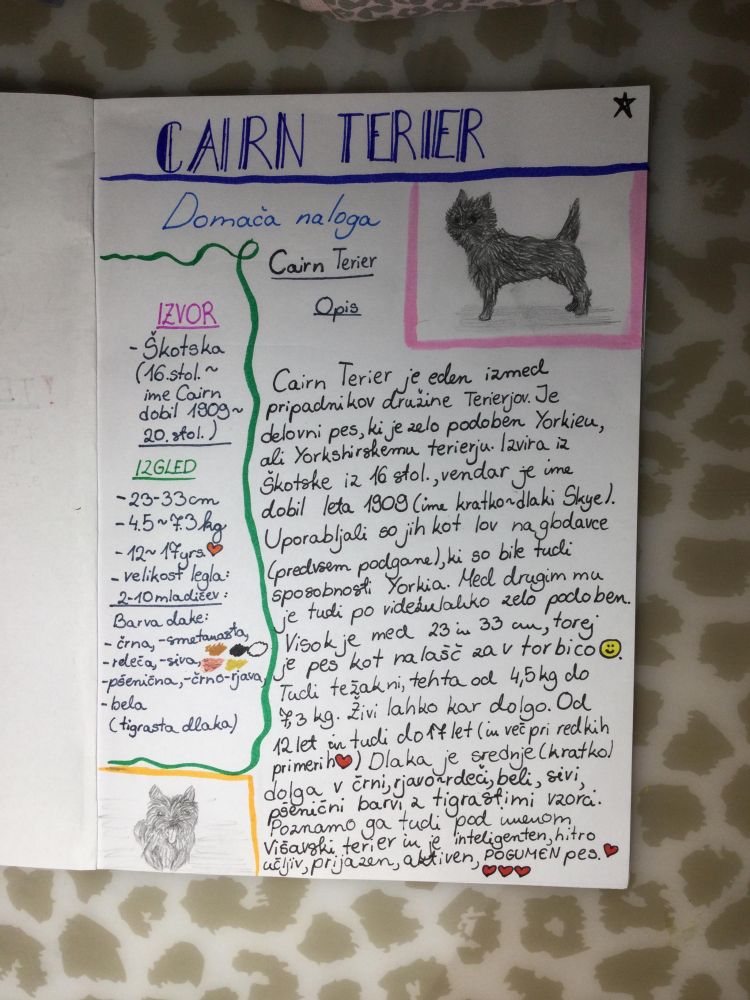 CAIRN TERIER
Domača naloga
Cairn Terier
Opis
IZVOR
- Škotska
(16.stol.~
ime Cairn
dobil 1909~
20. stol.)
IZGLED
- 23-33cm
- 4.5~7.3kg
- 12~17yrs
- velikost legla:
2-10 mladičev:
Barva dlake:
- črna, -smetanasta,
- rdeča, -siva,
-pšenična, -črno-rjava,
- bela
(tigrasta dlaka)
Cairn Terier je eden izmed
pripadnikov družine Terierjov. Je
delovni pes, ki je zelo podoben Yorkieu,
ali Yorkshirskemu terierju. Izvira iz
Škotske iz 16 stol., vendar je ime
dobil leta 1909 (ime kratko~dlaki Skye).
Uporabljali so jih kot lov na glodavce
(predvsem podgane), ki so bile tudi
sposobnosti Yorkia. Med drugim mu
je tudi po videzu lahko zelo podoben.
Visok je med 23 in 33 cm, torej
je pes kot nalašč za v torbico.
Tudi težakni, tehta od 4,5 kg do
7,3 kg. Živi lahko kar dolgo. Od
12 let in tudi do 17 let (in več pri redkih
primerih) Dlaka je srednje (kratko)
dolga v črni, rjavo~rdeči, beli, sivi,
pšenični barvi z tigrastimi vzorci.
Poznamo ga tudi pod imenom
Višavski terier in je inteligenten, hitro
učljiv, prijazen, aktiven, POGUMEN pes.